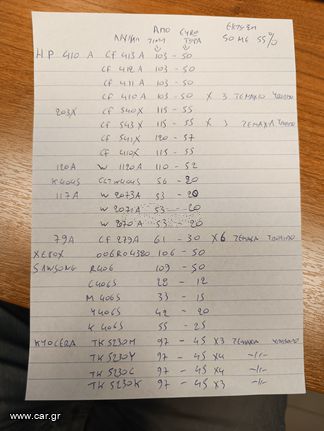 ΑΠΟ ΕΥΡΩ ΕΚΠΤΩΣΗ
ΑΝΤΑΛ ΤΙΜΗ ΤΩΡΑ 50 ΜΕ 55%
H.P. 410 A CF 413A 103 - 50
CF 412A 103 - 50
CF 411A 103 - 50
CF 410A 103 - 50 X 3 ΤΕΜΑΧΙΑ
203X CF 540X 115 - 55
CF 543X 115 - 55 X 3 ΤΕΜΑΧΙΑ
CF 541X 120 - 57
CF 410X 115 - 55
120A W 1120A 110 - 52
K404S 56 - 20
117A W 2073A 53 - 20
W 2071A 53 - 20
W 2070A 53 - 20
79A CF 279A 61 - 30 X6 ΤΕΜΑΧΙΑ
XEROX 006R04380 106 - 50
SAMSUNG R406 109 - 50
C406S 28 - 12
M 406S 33 - 15
Y406S 42 - 20
K 406S 55 - 25
KYOCERA TK 5230M 97 - 45 X3 ΤΕΜΑΧΙΑ
TK 5230Y 97 - 45 X4 -//-
TK 5230C 97 - 45 X4 -//-
TK 5230K 97 - 45 X3 -//-
www.car.gr